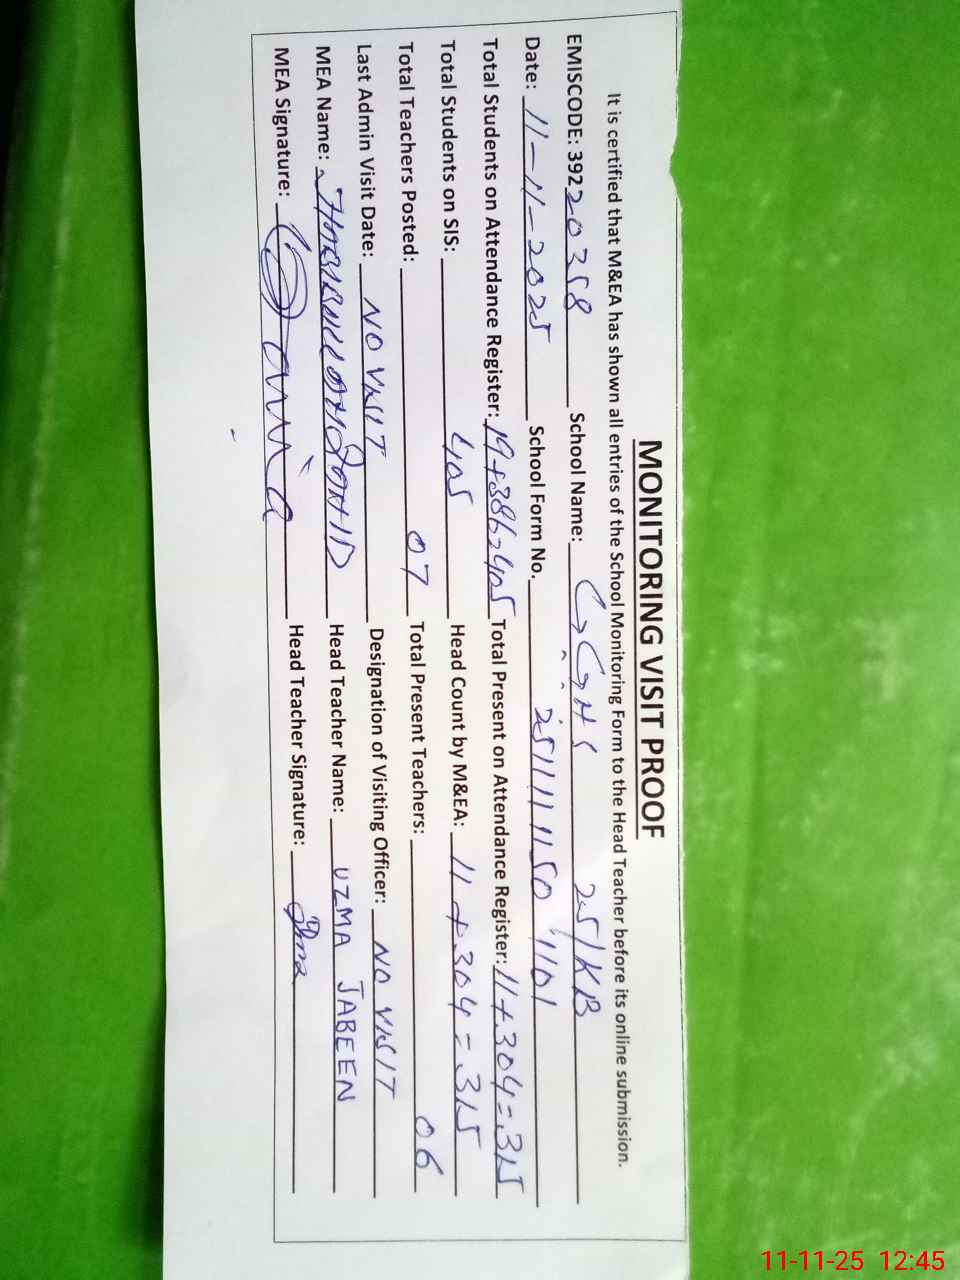 MONITORING VISIT PROOF
It is certified that M&EA has shown all entries of the School Monitoring Form to the Head Teacher before its online submission.
EMISCODE: 39220358 School Name: GGHS 25/KB
Date: 11-11-2025 School Form No. 251111150 1101
Total Students on Attendance Register: 19+386=405 Total Present on Attendance Register: 11+304=315
Total Students on SIS: 405 Head Count by M&EA: 11+304=315
Total Teachers Posted: 07 Total Present Teachers: 06
Last Admin Visit Date: NO VISIT Designation of Visiting Officer: NO VISIT
MEA Name: Head Teacher Name: UZMA JABEEN
MEA Signature: Head Teacher Signature:
11-11-25 12:45